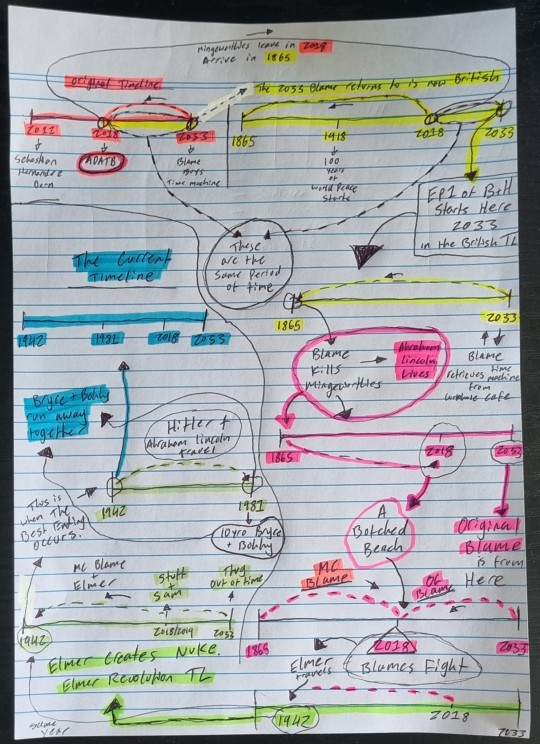 Mingeworthies leave in 2018
Arrive in 1865
Original Timeline
The 2033 Blame returns to is now British
2011
2018
2033
1865
1918
2018
2033
Sebastian
Hernandez
Born
ADATB
Blame
Buys
Time machine
100
Years
of
World Peace
Starts
EP1 of B+H
Starts Here
2033
in the British TL
These
are the
Same Period
of time
The Current
Timeline
1942
1981
2018
2033
1865
2033
Blame
Kills
Mingeworthies
Abraham
Lincoln
Lives
Blame
retrieves time
machine
from
cafe
Bryce + Bobby
run away
together
Hitler +
Abraham Lincoln
travel
1942
1981
This is
when The
Best Ending
Occurs.
10yro Bryce
+ Bobby
1865
2018
2033
A
Botched
Beach
Original
Blame
is from
Here
MC Blame
+
Elmer
Stuff
+
Sam
Thug
Out of time
1942
2018/2019
2033
MC
Blame
OG
Blame
1865
2018
2033
Blames Fight
Elmer
travels
Elmer Creates Nuke.
Elmer Revolution TL
Same
year
1942
2018
2033